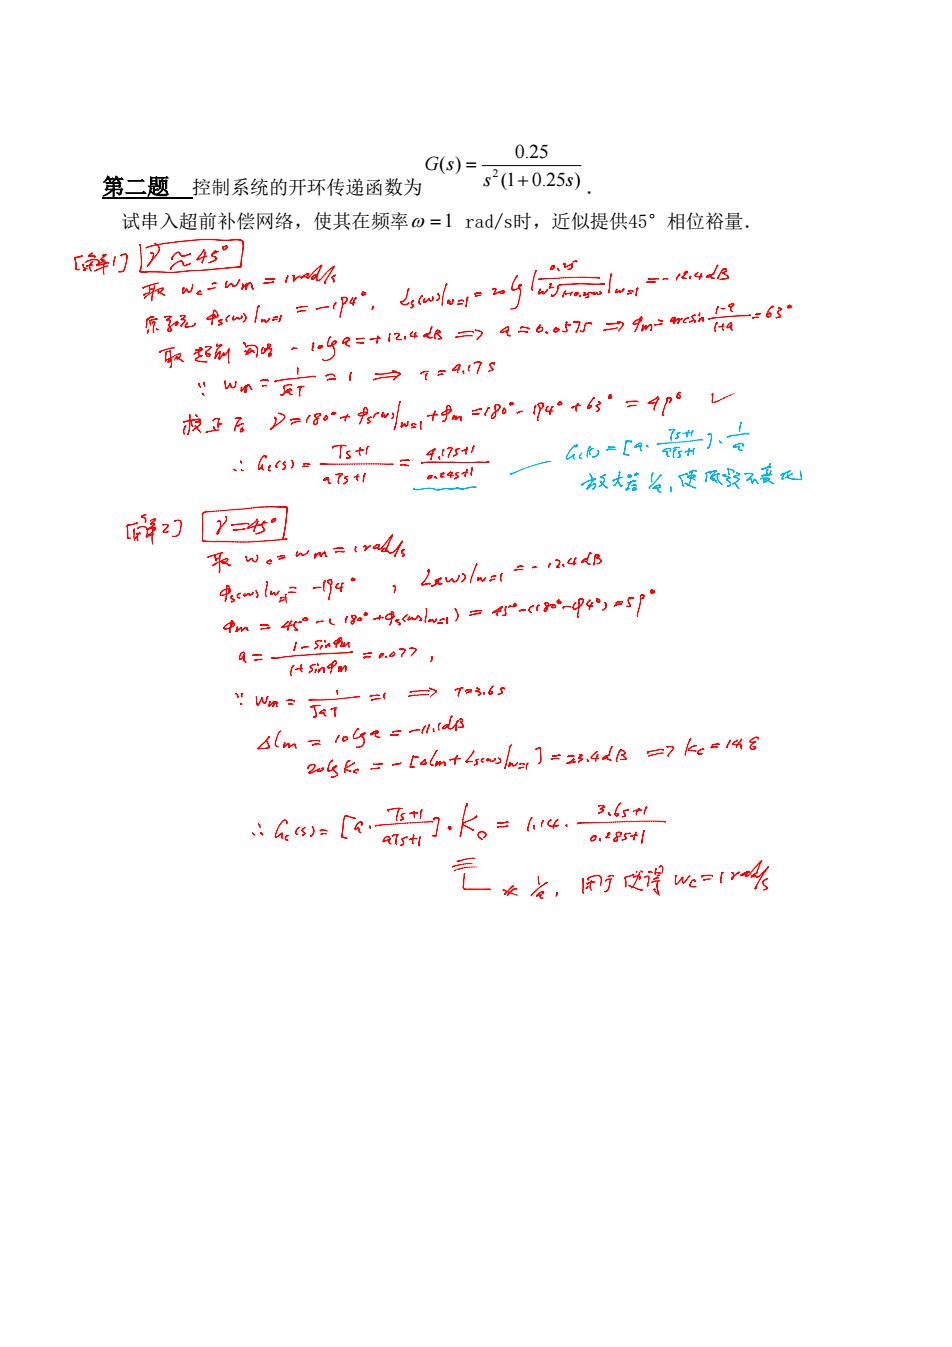 第二题 控制系统的开环传递函数为 G(s) = 0.25 / s²(1+0.25s) .
试串入超前补偿网络，使其在频率 ω = 1 rad/s时，近似提供45°相位裕量.
[解1] γ ≈ 45°
取 ωc = ωm = 1 rad/s
原系统 φs(ω)|ω=1 = -194°, Ls(ω)|ω=1 = 20lg| 0.25 / ω²√ |ω=1 = -12.4dB
取超前网络 -10lg a = +12.4dB ⟹ a = 0.0575 ⟹ φm = arcsin (1-a)/(1+a) = 63°
∵ ωm = 1/(√a T) = 1 ⟹ T = 4.17s
校正后 γ = 180° + φs(ω)|ω=1 + φm = 180° - 194° + 63° = 49° ✓
∴ Gc(s) = (Ts+1)/(aTs+1) = (4.17s+1)/(0.24s+1)
Gc(s) = [a · (Ts+1)/(aTs+1)] · 1/a
放大器 1/a, 使 不变化
[解2] γ = 45°
取 ωc = ωm = 1 rad/s
φs(ω)|ω=1 = -194°, Ls(ω)|ω=1 = -12.4dB
φm = 45° - (180° + φs(ω)|ω=1) = 45° - (180° - 194°) = 59°
a = (1 - sinφm)/(1 + sinφm) = 0.077,
∵ ωm = 1/(√a T) = 1 ⟹ T = 3.6s
ΔLm = 10lg a = -11.1dB
20lg Kc = -[ΔLm + Ls(ω)|ω=1] = 23.4dB ⟹ Kc = 14.8
∴ Gc(s) = [a · (Ts+1)/(aTs+1)] · K₀ = 1.14 · (3.6s+1)/(0.28s+1)
1/a, 用于使得 ωc = 1 rad/s